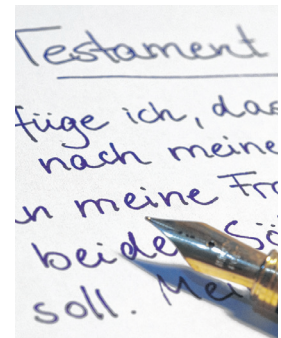 Testament
füge ich, das
nach meine
n meine Fr
beide Sö
soll. Mei